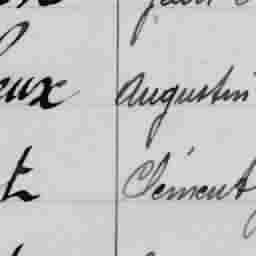 eux Augustin
t Clément